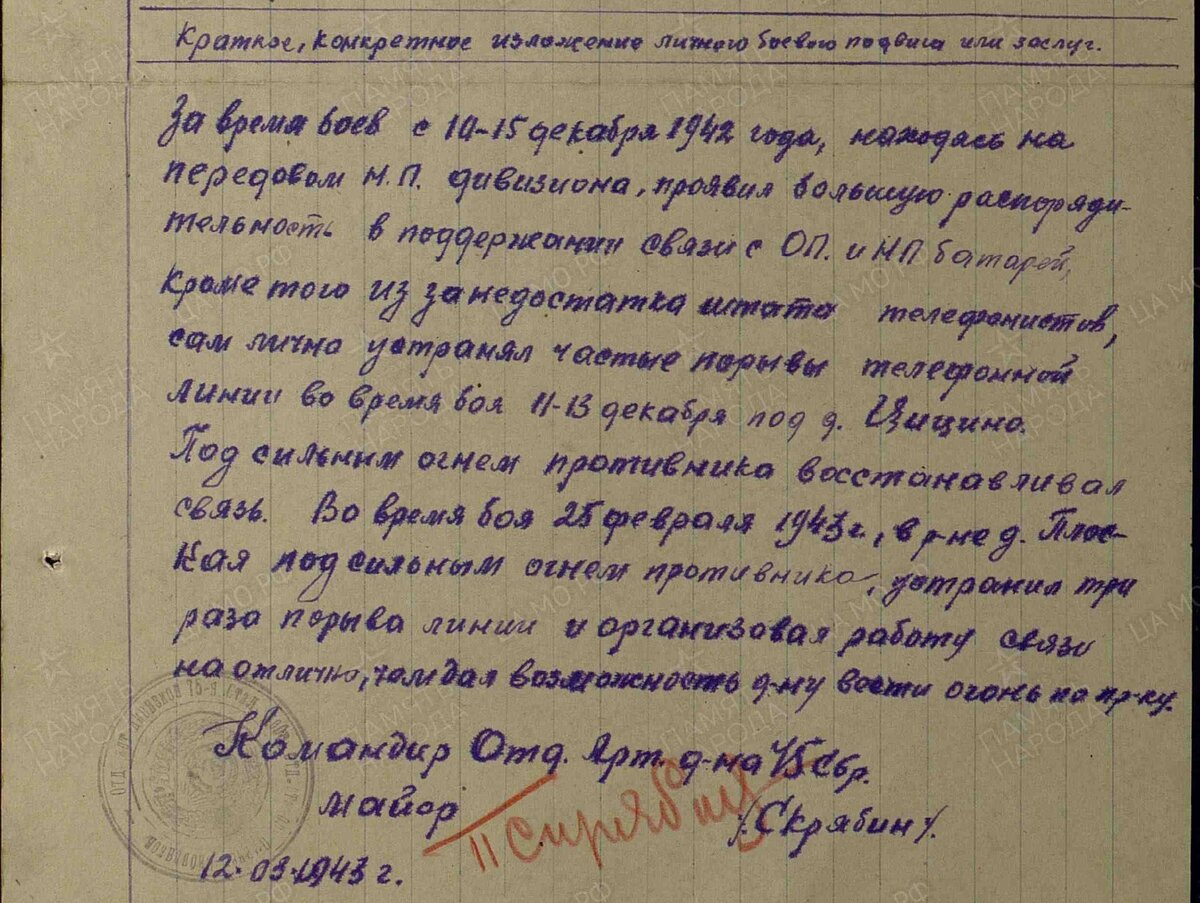 Краткое, конкретное изложение личного боевого подвига или заслуг.
За время боев с 10-15 декабря 1942 года, находясь на
передовом Н.П. дивизиона, проявил большую распоряди-
тельность в поддержании связи с ОП. и НП батарей,
Кроме того из за недостатка штата телефонистов,
сам лично устранял частые порывы телефонной
линии во время боя 11-13 декабря под д. Цицино.
Под сильним огнем противника восстанавливал
связь. Во время боя 25 февраля 1943 г., в р-не д. Плос-
кая под сильным огнем противника, устранил три
раза порыва линии и организовал работу связи
на отлично, чем дал возможность д-ну вести огонь по пр-ку.
Командир Отд. Арт. д-на 45 Сбр.
майор /Скрябин/.
12.03.1943 г.
ПАМЯТЬ НАРОДА
ЦА МО РФ